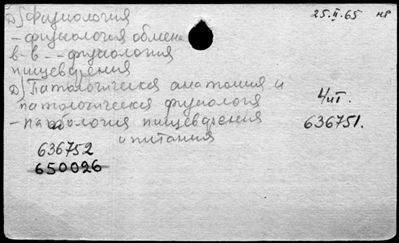 Д) Физиология
– физиология обмена
в-в – – физиология
пищеварения
Д) Патологическая анатомия и
патологическая физиология
– патология пищеварения
и питания
636752
650026
25.II.65 нв
Чит.
636751.